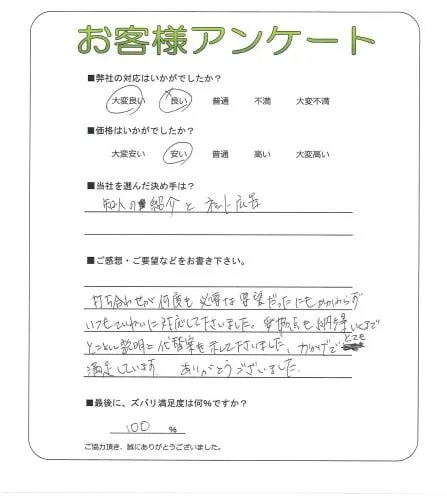 お客様アンケート
■弊社の対応はいかがでしたか？
大変良い 良い 普通 不満 大変不満
■価格はいかがでしたか？
大変安い 安い 普通 高い 大変高い
■当社を選んだ決め手は？
知人の紹介と ネット広告
■ご感想・ご要望などをお書き下さい。
打ち合わせが何度も必要な要望だったにもかかわらず
いつもていねいに対応して下さいました。 も納得いくまで
とことん説明と代替案を示して下さいました。おかげで とても
満足しています。 ありがとうございました。
■最後に、ズバリ満足度は何％ですか？
100 ％
ご協力頂き、誠にありがとうございました。